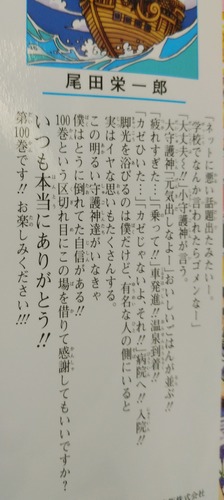 尾田栄一郎
「ネットに悪い話題出てみたいー。
学校でなんか言われたらゴメンなー」
「大丈夫く!!」小守護神が言う。
大守護神「元気出しなよー」おいしいごはんが並ぶ!!
「疲れすぎた…」「乗って!!」車発進!!温泉到着!!
「カゼひいた…」「カゼじゃないよ、それ!!」病院へ!!入院!!
脚光を浴びるのは僕だけど、有名な人の側にいると
実はイヤな思いもたくさんする。
この明るい守護神達がいなきゃ
僕はとうに倒れてた自信がある!!
100巻という区切れ目にこの場を借りて感謝してもいいですか?
いつも本当にありがとう!!
第100巻です!!お楽しみください!!!
株式会社